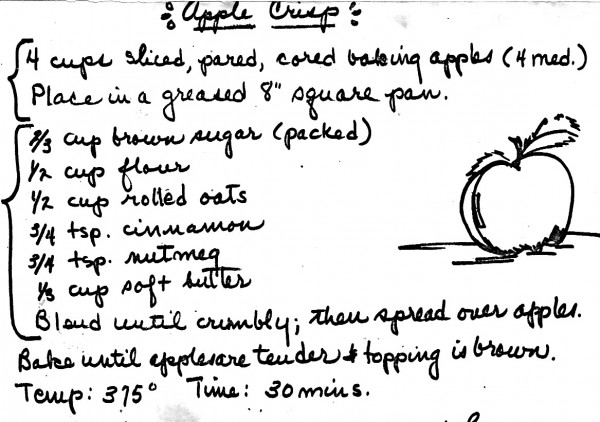 Apple Crisp
4 cups sliced, pared, cored baking apples (4 med.)
Place in a greased 8" square pan.
2/3 cup brown sugar (packed)
1/2 cup flour
1/2 cup rolled oats
3/4 tsp. cinnamon
3/4 tsp. nutmeg
1/3 cup soft butter
Blend until crumbly; then spread over apples.
Bake until apples are tender & topping is brown.
Temp: 375° Time: 30 mins.